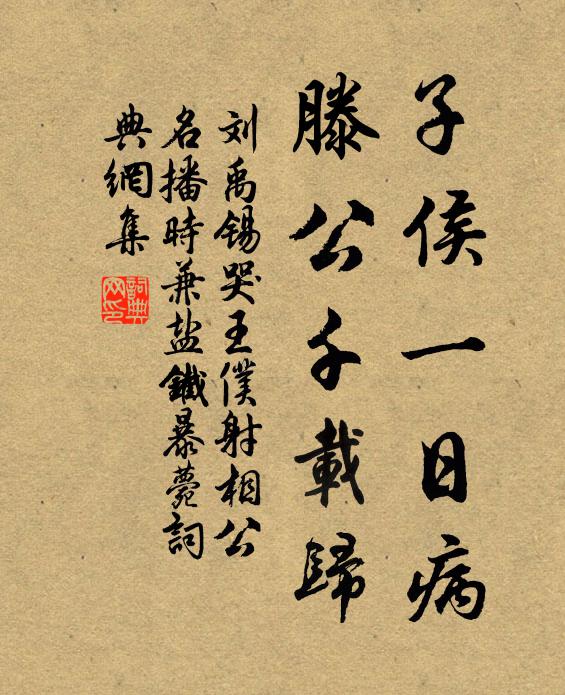 子侯一日病
滕公千載歸
刘禹锡哭王僕射相公
名播時兼盐鐵暴薨詞
典網集
詞典
网印